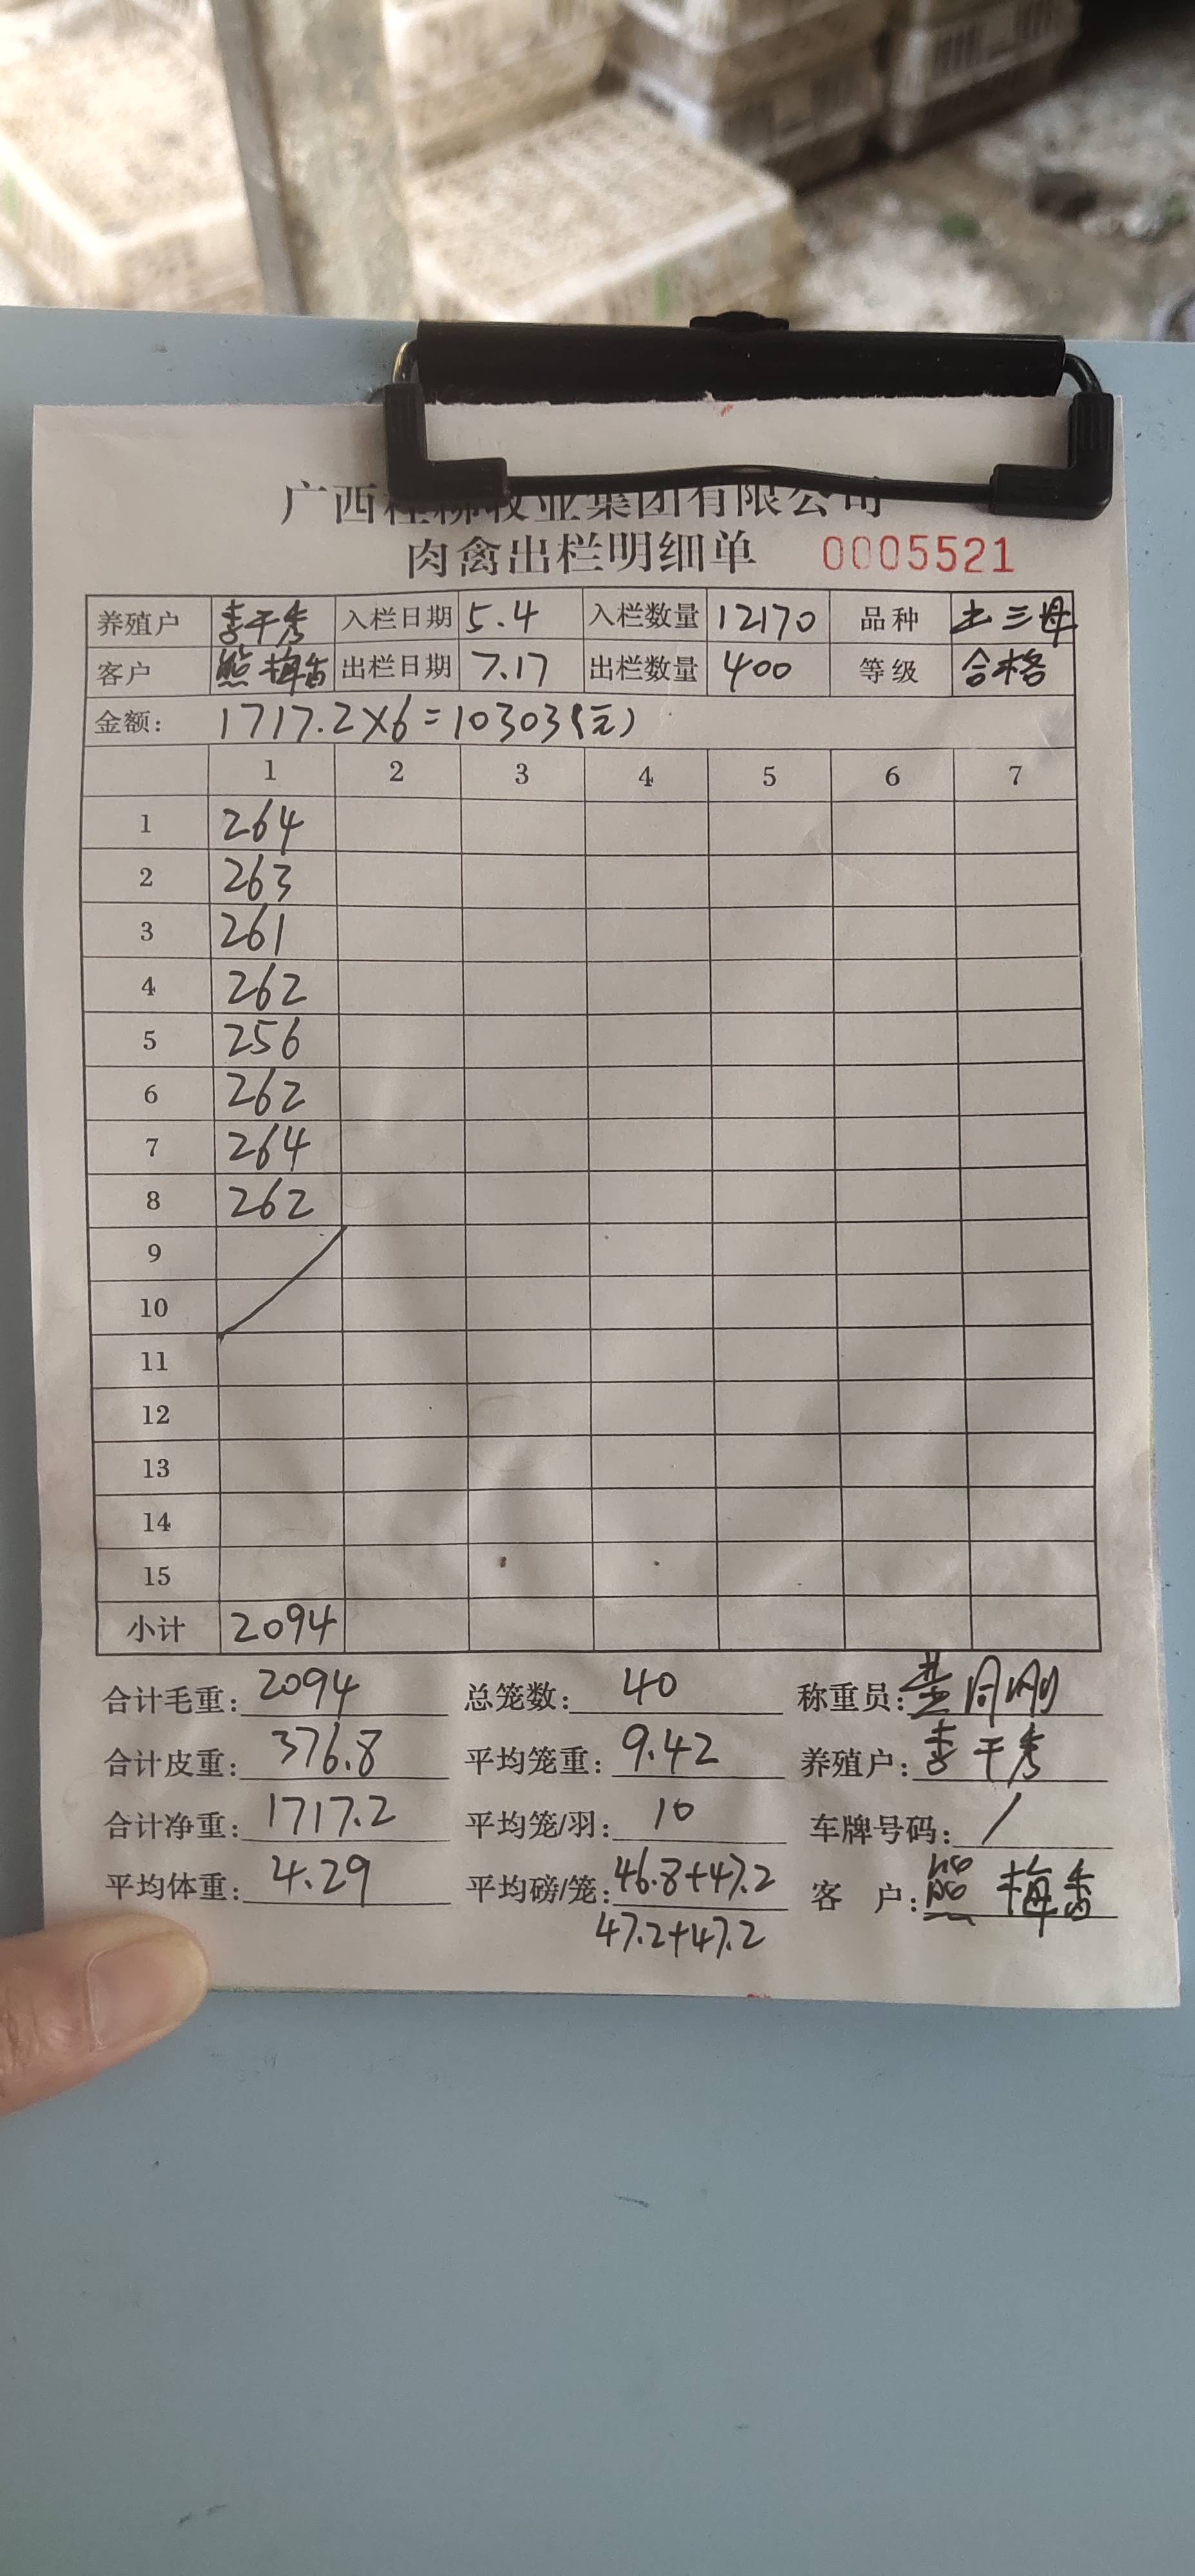 广西桂柳牧业集团有限公司
肉禽出栏明细单 0005521
养殖户 李干秀 入栏日期 5.4 入栏数量 12170 品种 土三母
客户 熊梅香 出栏日期 7.17 出栏数量 400 等级 合格
金额: 1717.2×6=10303(元)
1 2 3 4 5 6 7
1 264
2 263
3 261
4 262
5 256
6 262
7 264
8 262
9
10
11
12
13
14
15
小计 2094
合计毛重: 2094 总笼数: 40 称重员:
合计皮重: 376.8 平均笼重: 9.42 养殖户: 李干秀
合计净重: 1717.2 平均笼/羽: 10 车牌号码: /
平均体重: 4.29 平均磅/笼: 46.8+47.2 客 户: 熊梅香
47.2+47.2